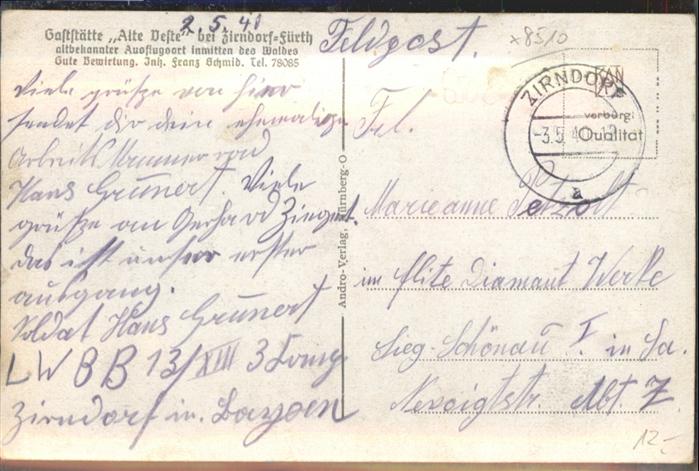 2.5.40
Gaststätte „Alte Veste“ bei Zirndorf-Fürth
altbekannter Ausflugsort inmitten des Waldes
Gute Bewirtung. Inh. Franz Schmid. Tel. 78085
Feldpost.
x8510
Viele grüße von hier
sendet dir dein ehemaliger
Arbeits
Hans Grunert. Viele
grüße an Gerhard
das ist unser erster
ausgang.
Soldat Hans Grunert
LW BB 13/XIII 3 Komp
Zirndorf in Bayern
Andro-Verlag, Nürnberg-O
ZIRNDORF
-3.5.4
a
verbürgt
Qualität
Frl.
Marieanne Petzolt
im Elite Diamant Werke
Sieg-Schönau I. in Sa.
Nevoigtstr. Abt. Z.
12,-